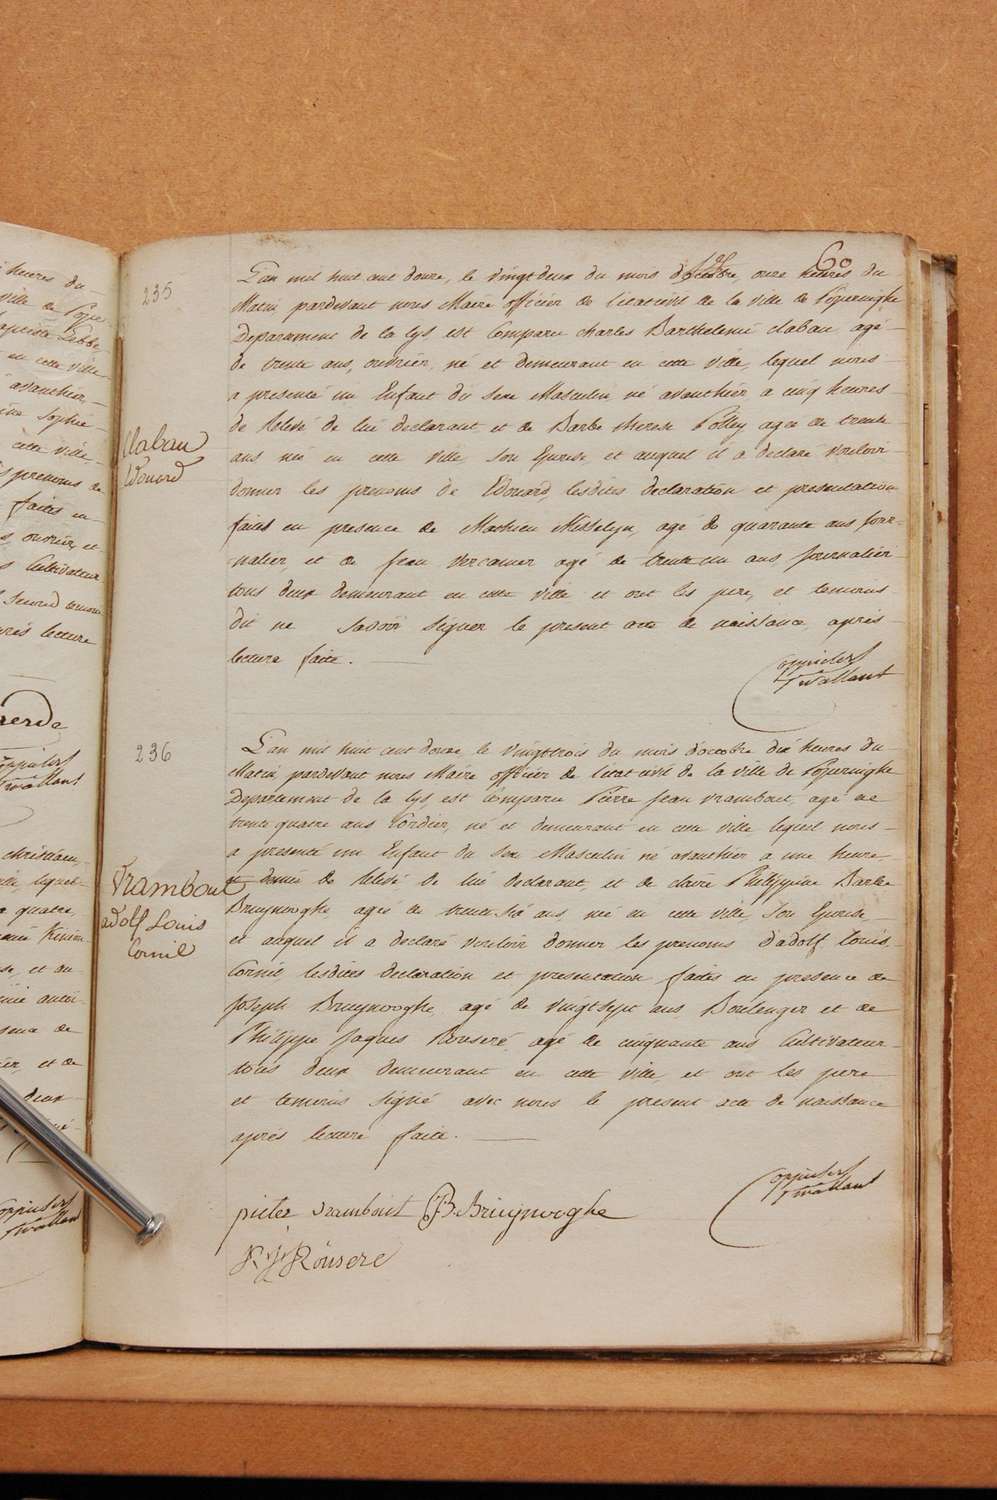 60
235
L'an mil huit cent douze, le vingt deux du mois d'octobre, onze heures du
Matin pardevant nous Maire officier de l'etat civil de la ville de Poperinghe
Departement de la Lys, est Comparu Charles Barthelemi Clabau agé
de trente ans, ouvrier, né et demeurant en cette ville, lequel nous
a presenté un Enfant du Sexe Masculin né avanthier a cinq heures
de relevé de lui declarant et de Barbe therese Polley agée de trente
ans née en cette ville Son Epouse et auquel il a declaré vouloir
donner les prenoms de Edouard, lesdites declaration et presentation
faites en presence de Mathieu Misselyn, agé de quarante ans jour-
nalier, et de Jean Vercamer agé de trente un ans, journalier
tous deux demeurant en cette ville et ont les pere, et temoins
dit ne Savoir Signer le present acte de naissance, après
lecture faite.
Clabau
Edouard
236
L'an mil huit cent douze le vingttrois du mois d'octobre dix heures du
Matin pardevant nous Maire officier de l'etat civil de la ville de Poperinghe
Departement de la Lys, est Comparu Pierre Jean Vrambout, agé de
trente quatre ans Cordier, né et demeurant en cette ville lequel nous
a presenté un Enfant du Sexe Masculin né avanthier a une heure
et demie de relevé de lui declarant, et de Claire Philippine Barbe
Bruynooghe, agée de trente six ans, née en cette ville Son Epouse
et auquel il a declaré vouloir donner les prenoms d'adolf Louis
Cornil lesdites declaration et presentation faites en presence de
Joseph Bruynooghe, agé de vingtsept ans Boulenger et de
Philippe Jaques Rouseré agé de cinquante ans Cultivateur
tous deux demeurant en cette ville, et ont les pere
et temoins Signé avec nous le present acte de naissance
après lecture faite.
Vrambout
adolf Louis
Cornil
pieter vrambout B. Bruynooghe
Rousere